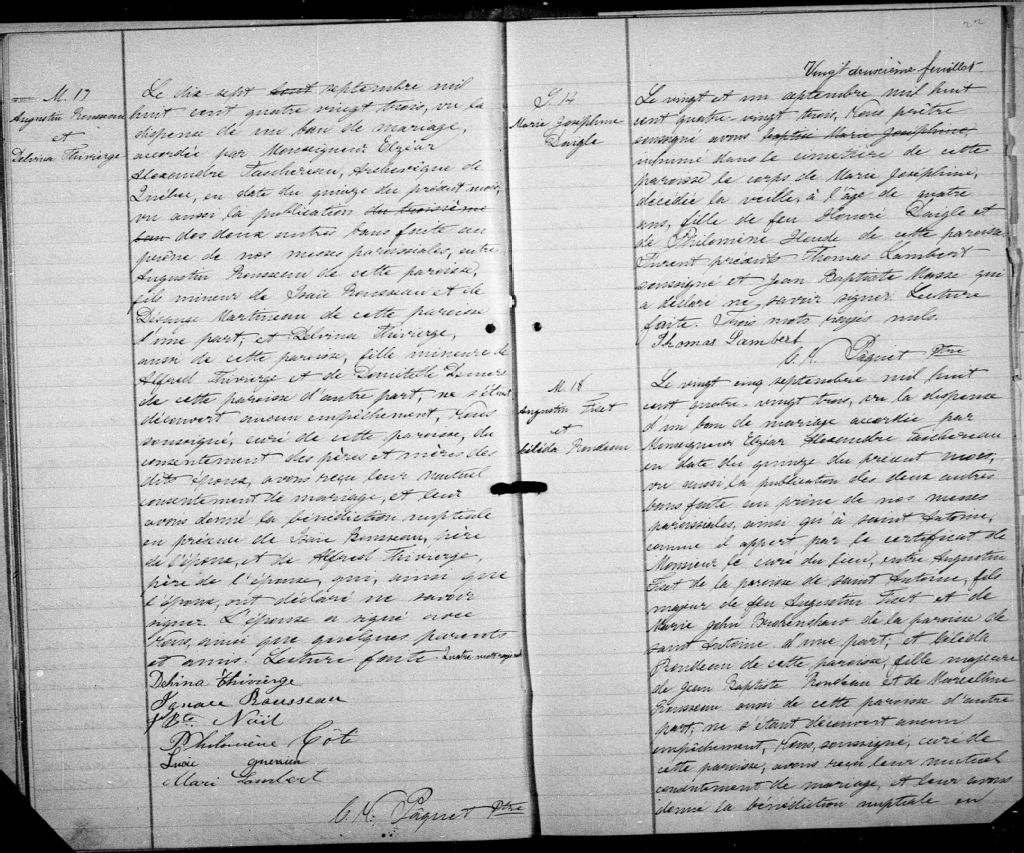 M. 17
Augustin Rousseau
et
Delvina Thivierge
Le dix sept tout septembre mil
huit cent quatre vingt trois, vu la
dispense de un ban de mariage,
accordée par Monseigneur Elzéar
Alexandre Taschereau, Archevêque de
Québec, en date du quinze du présent mois,
vu aussi la publication du troisième
ban des deux autres bans faite au
prône de nos messes paroissiales, entre
Augustin Rousseau de cette paroisse,
fils mineur de Isaïe Rousseau et de
Desange Martineau de cette paroisse
d'une part, et Delvina Thivierge,
aussi de cette paroisse, fille mineure de
Alfred Thivierge et de Domitilde Demers
de cette paroisse d'autre part, ne s'étant
découvert aucun empêchement, Nous
soussigné, curé de cette paroisse, du
consentement des pères et mères des
dits époux, avons reçu leur mutuel
consentement de mariage, et leur
avons donné la bénédiction nuptiale
en présence de Isaïe Rousseau, père
de l'époux, et de Alfred Thivierge,
père de l'épouse, qui, ainsi que
l'époux, ont déclaré ne savoir
signer. L'épouse a signé avec
Nous, ainsi que quelques parents
et amis. Lecture faite. Quatre mots rayés
Delvina Thivierge
Ignace Rousseau
J Bte Noël
Philomène Cote
Mari Lambert
Paquet Ptre
22
Vingt deuxième feuillet
S. 14
Marie Josephine
Daigle
Le vingt et un septembre mil huit
cent quatre-vingt trois, Nous prêtre
soussigné avons baptisé Marie Josephine,
inhumé dans le cimetière de cette
paroisse le corps de Marie Josephine,
décédée la veille, à l'âge de quatre
ans, fille de feu Honoré Daigle et
de Philomène Houde de cette paroisse.
Furent présents Thomas Lambert
soussigné et Jean Baptiste Masse qui
a déclaré ne savoir signer. Lecture
faite. Trois mots rayés nuls.
Thomas Lambert
Paquet Ptre
M. 18
Augustin Fiset
et
Rondeau
Le vingt cinq septembre mil huit
cent quatre-vingt trois, vu la dispense
d'un ban de mariage accordée par
Monseigneur Elzéar Alexandre Taschereau
en date du quinze du présent mois;
vu aussi la publication des deux autres
bans faite au prône de nos messes
paroissiales, ainsi qu'à saint Antoine,
comme il appert par le certificat de
Monsieur le curé du lieu, entre Augustin
Fiset de la paroisse de saint Antoine, fils
majeur de feu Augustin Fiset et de
Marie de la paroisse de
saint Antoine d'une part; et
Rondeau de cette paroisse, fille majeure
de Jean Baptiste Rondeau et de Marcelline
Rousseau aussi de cette paroisse d'autre
part; ne s'étant découvert aucun
empêchement, Nous, soussigné, curé de
cette paroisse, avons reçu leur mutuel
consentement de mariage, et leur avons
donné la bénédiction nuptiale en